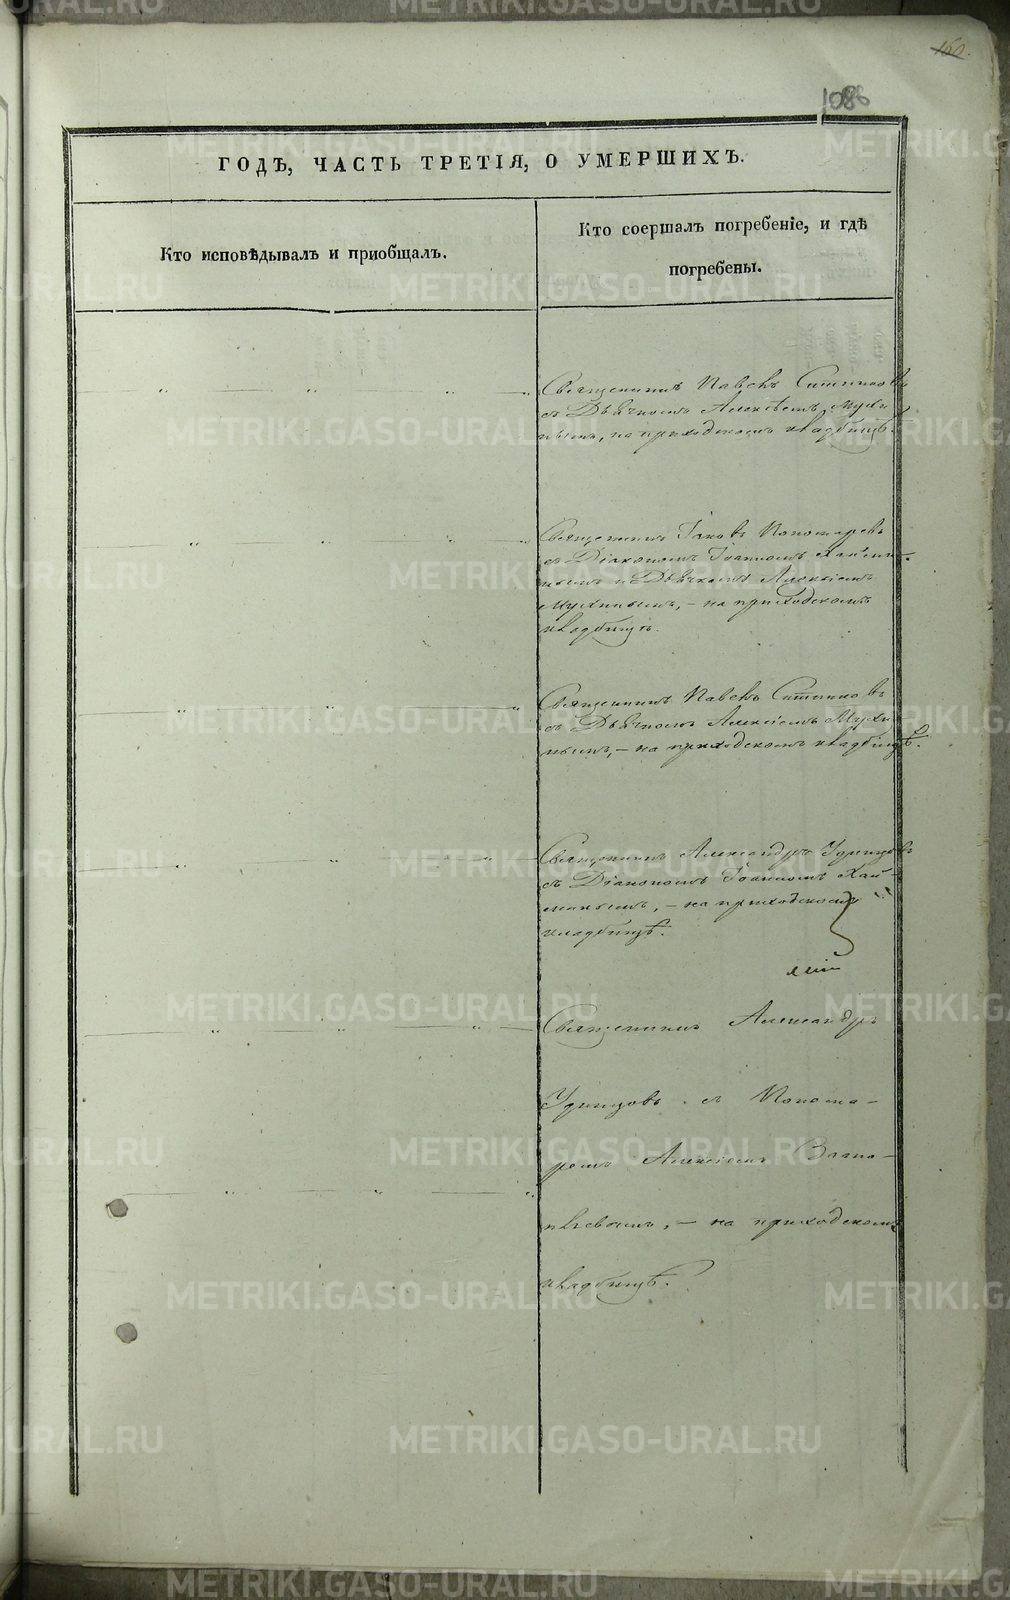 160.
1086
ГОДѢ, ЧАСТЬ ТРЕТІЯ, О УМЕРШИХЪ.
Кто исповѣдывалъ и приобщалъ.
Кто соершалъ погребеніе, и гдѣ
погребены.
Священникъ Павелъ Ситниковъ
съ Дьячкомъ Алексѣемъ Мухи
нымъ, на приходскомъ кладбищѣ.
Священникъ Іаковъ Пономаревъ
съ Діакономъ Іоанномъ
и Дьячкомъ Алексіемъ
Мухинымъ, – на приходскомъ
кладбищѣ.
Священникъ Павелъ Ситниковъ
съ Дьячкомъ Алексіемъ Мухи
нымъ, – на приходскомъ кладбищѣ.
Священникъ Александръ Удинцовъ
съ Діакономъ Іоанномъ
– на приходскомъ
кладбищѣ.
Священникъ Александръ
Удинцовъ съ Понома–
ремъ Алексіемъ
– на приходскомъ
кладбищѣ.
METRIKI.GASO-URAL.RU